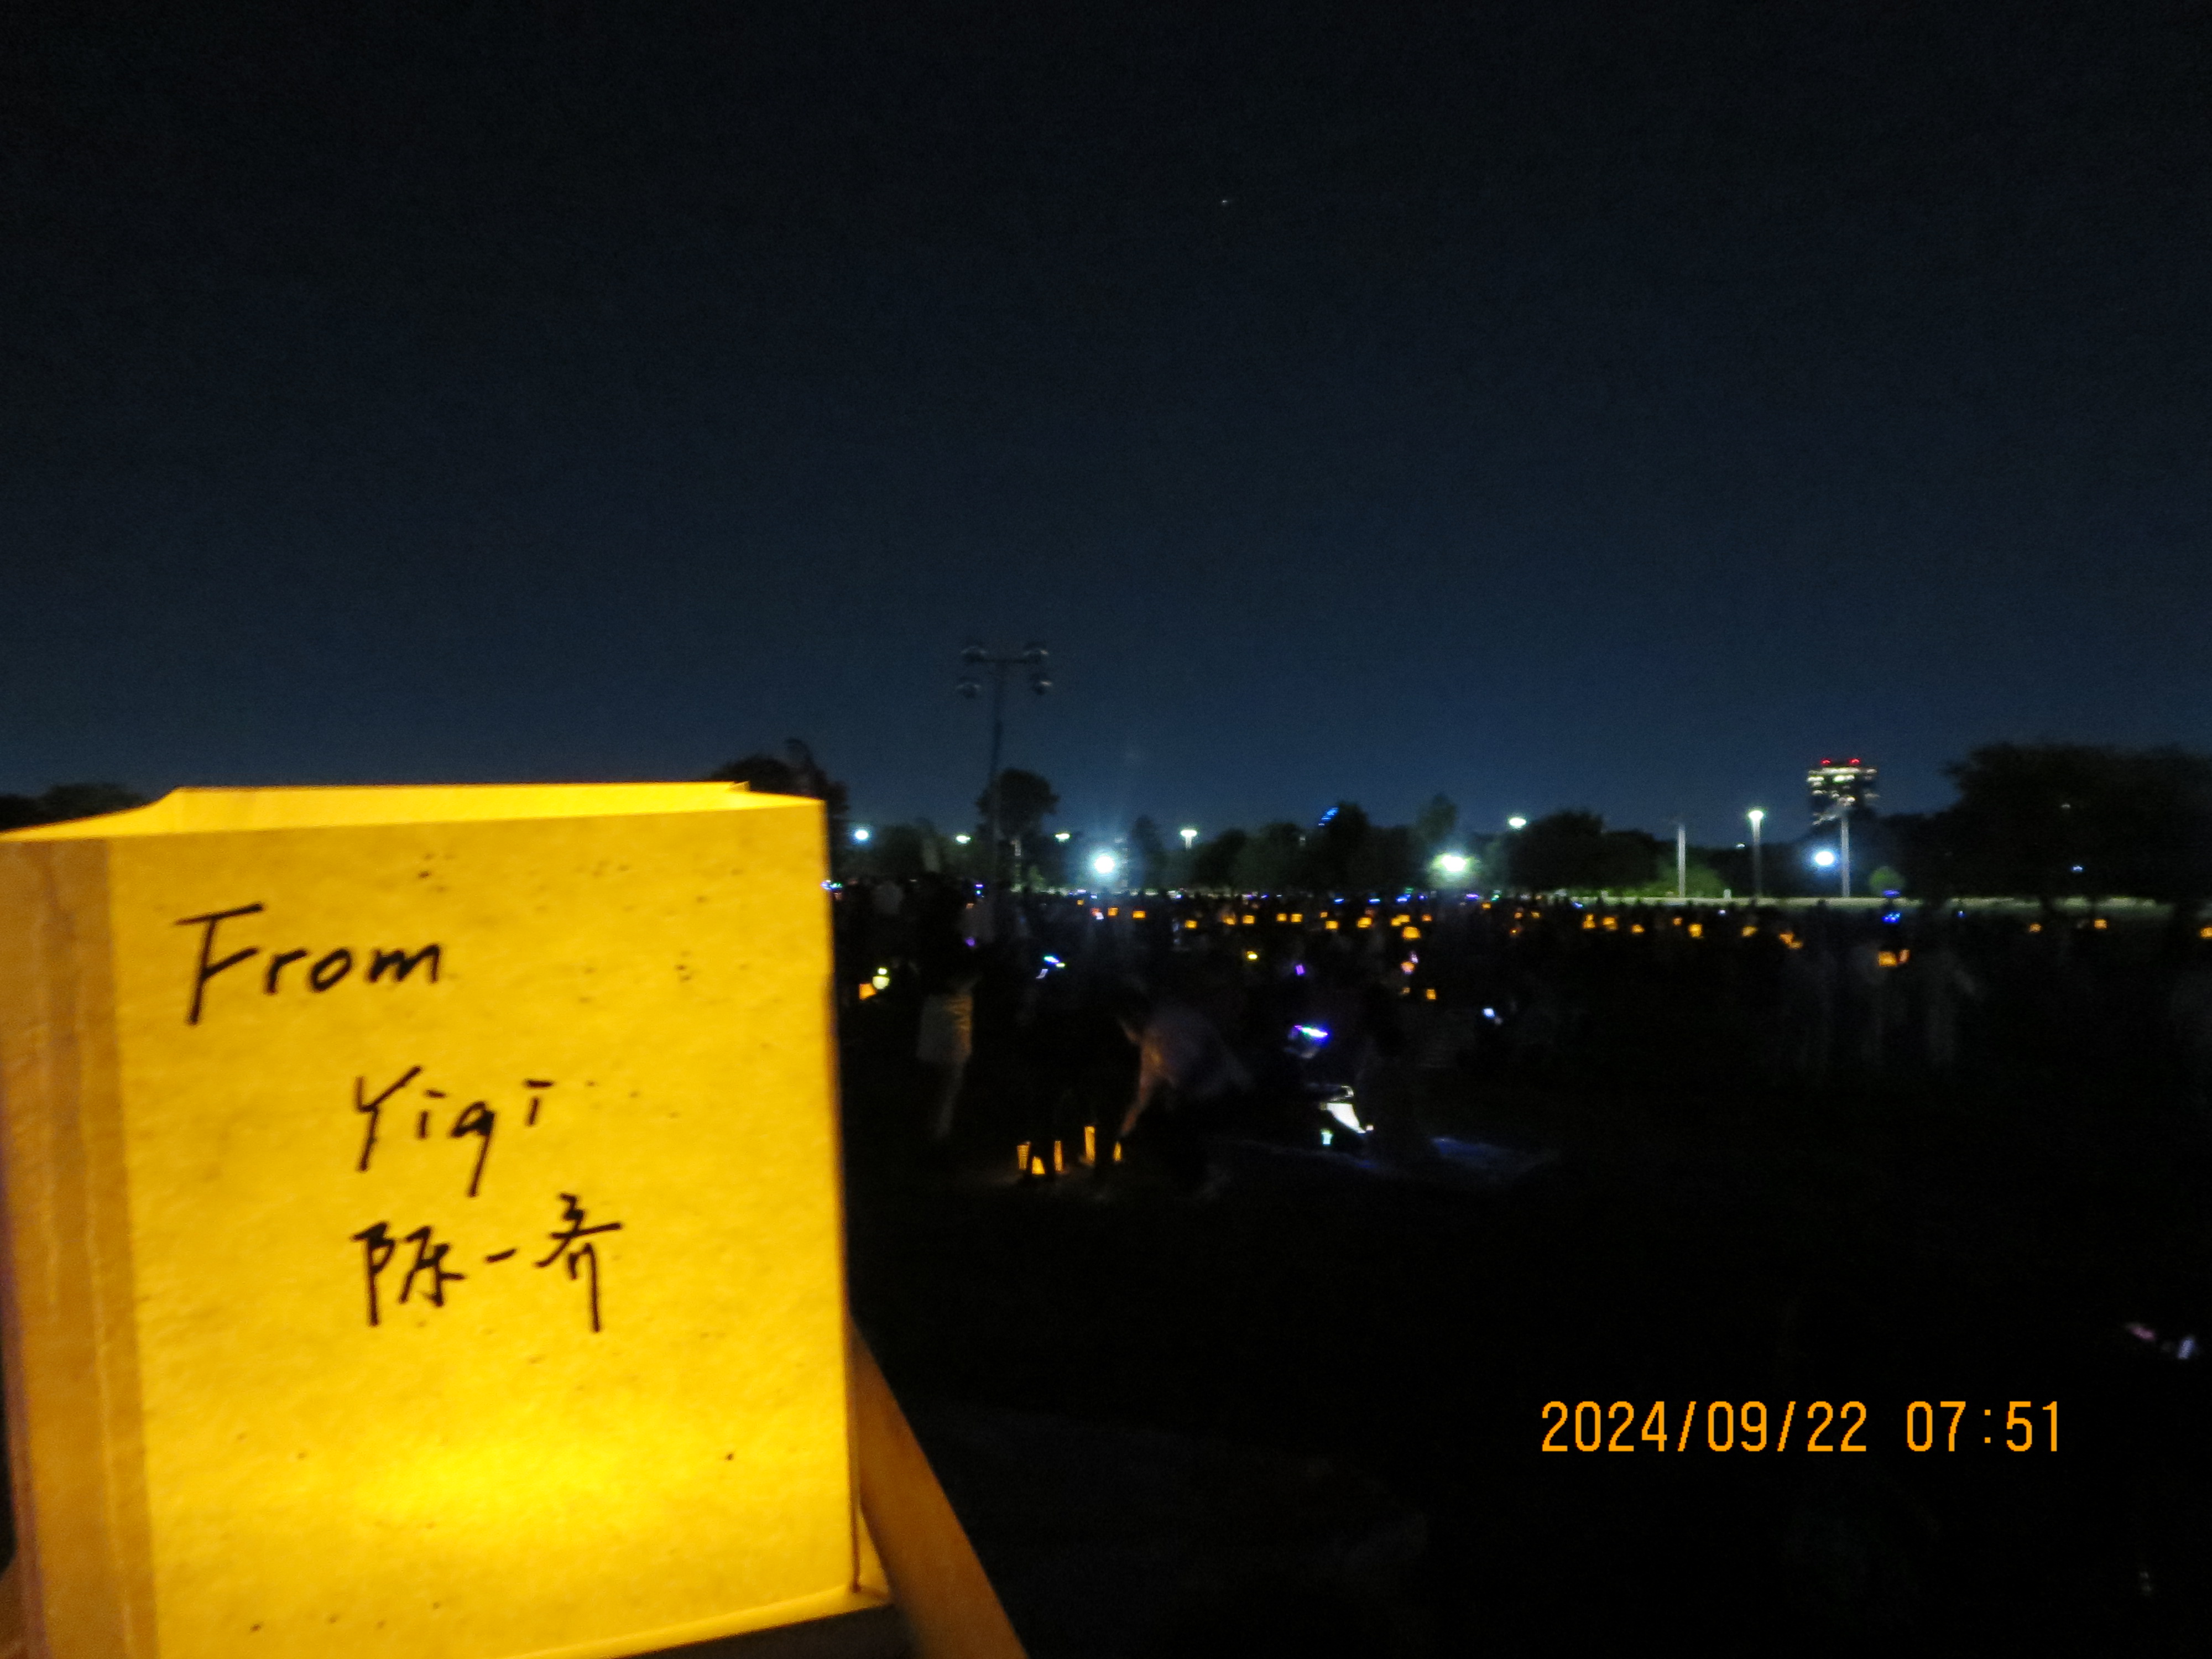 From
Yiqi
陈一齐
2024/09/22 07:51